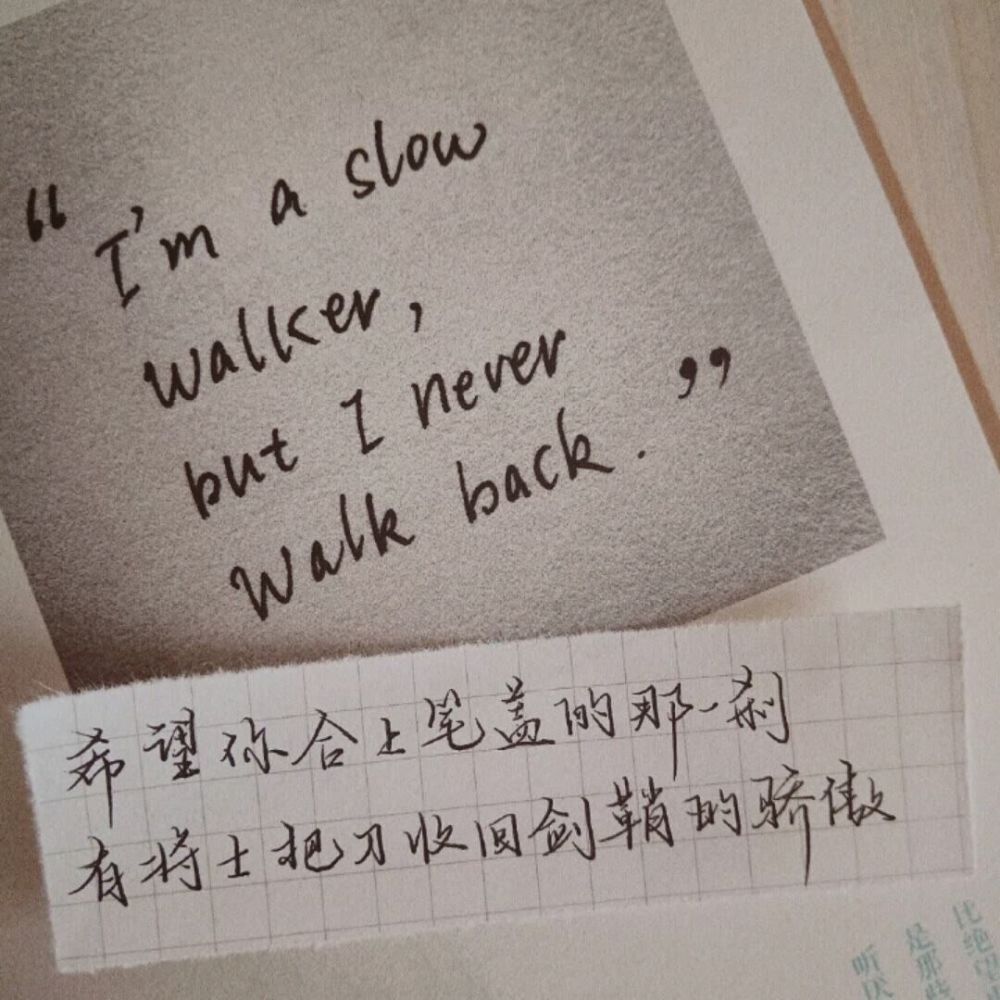 “I'm a slow
walker,
but I never
walk back.”
希望你合上笔盖的那一刹
有将士把刀收回剑鞘的骄傲
比绝望
是那些
听